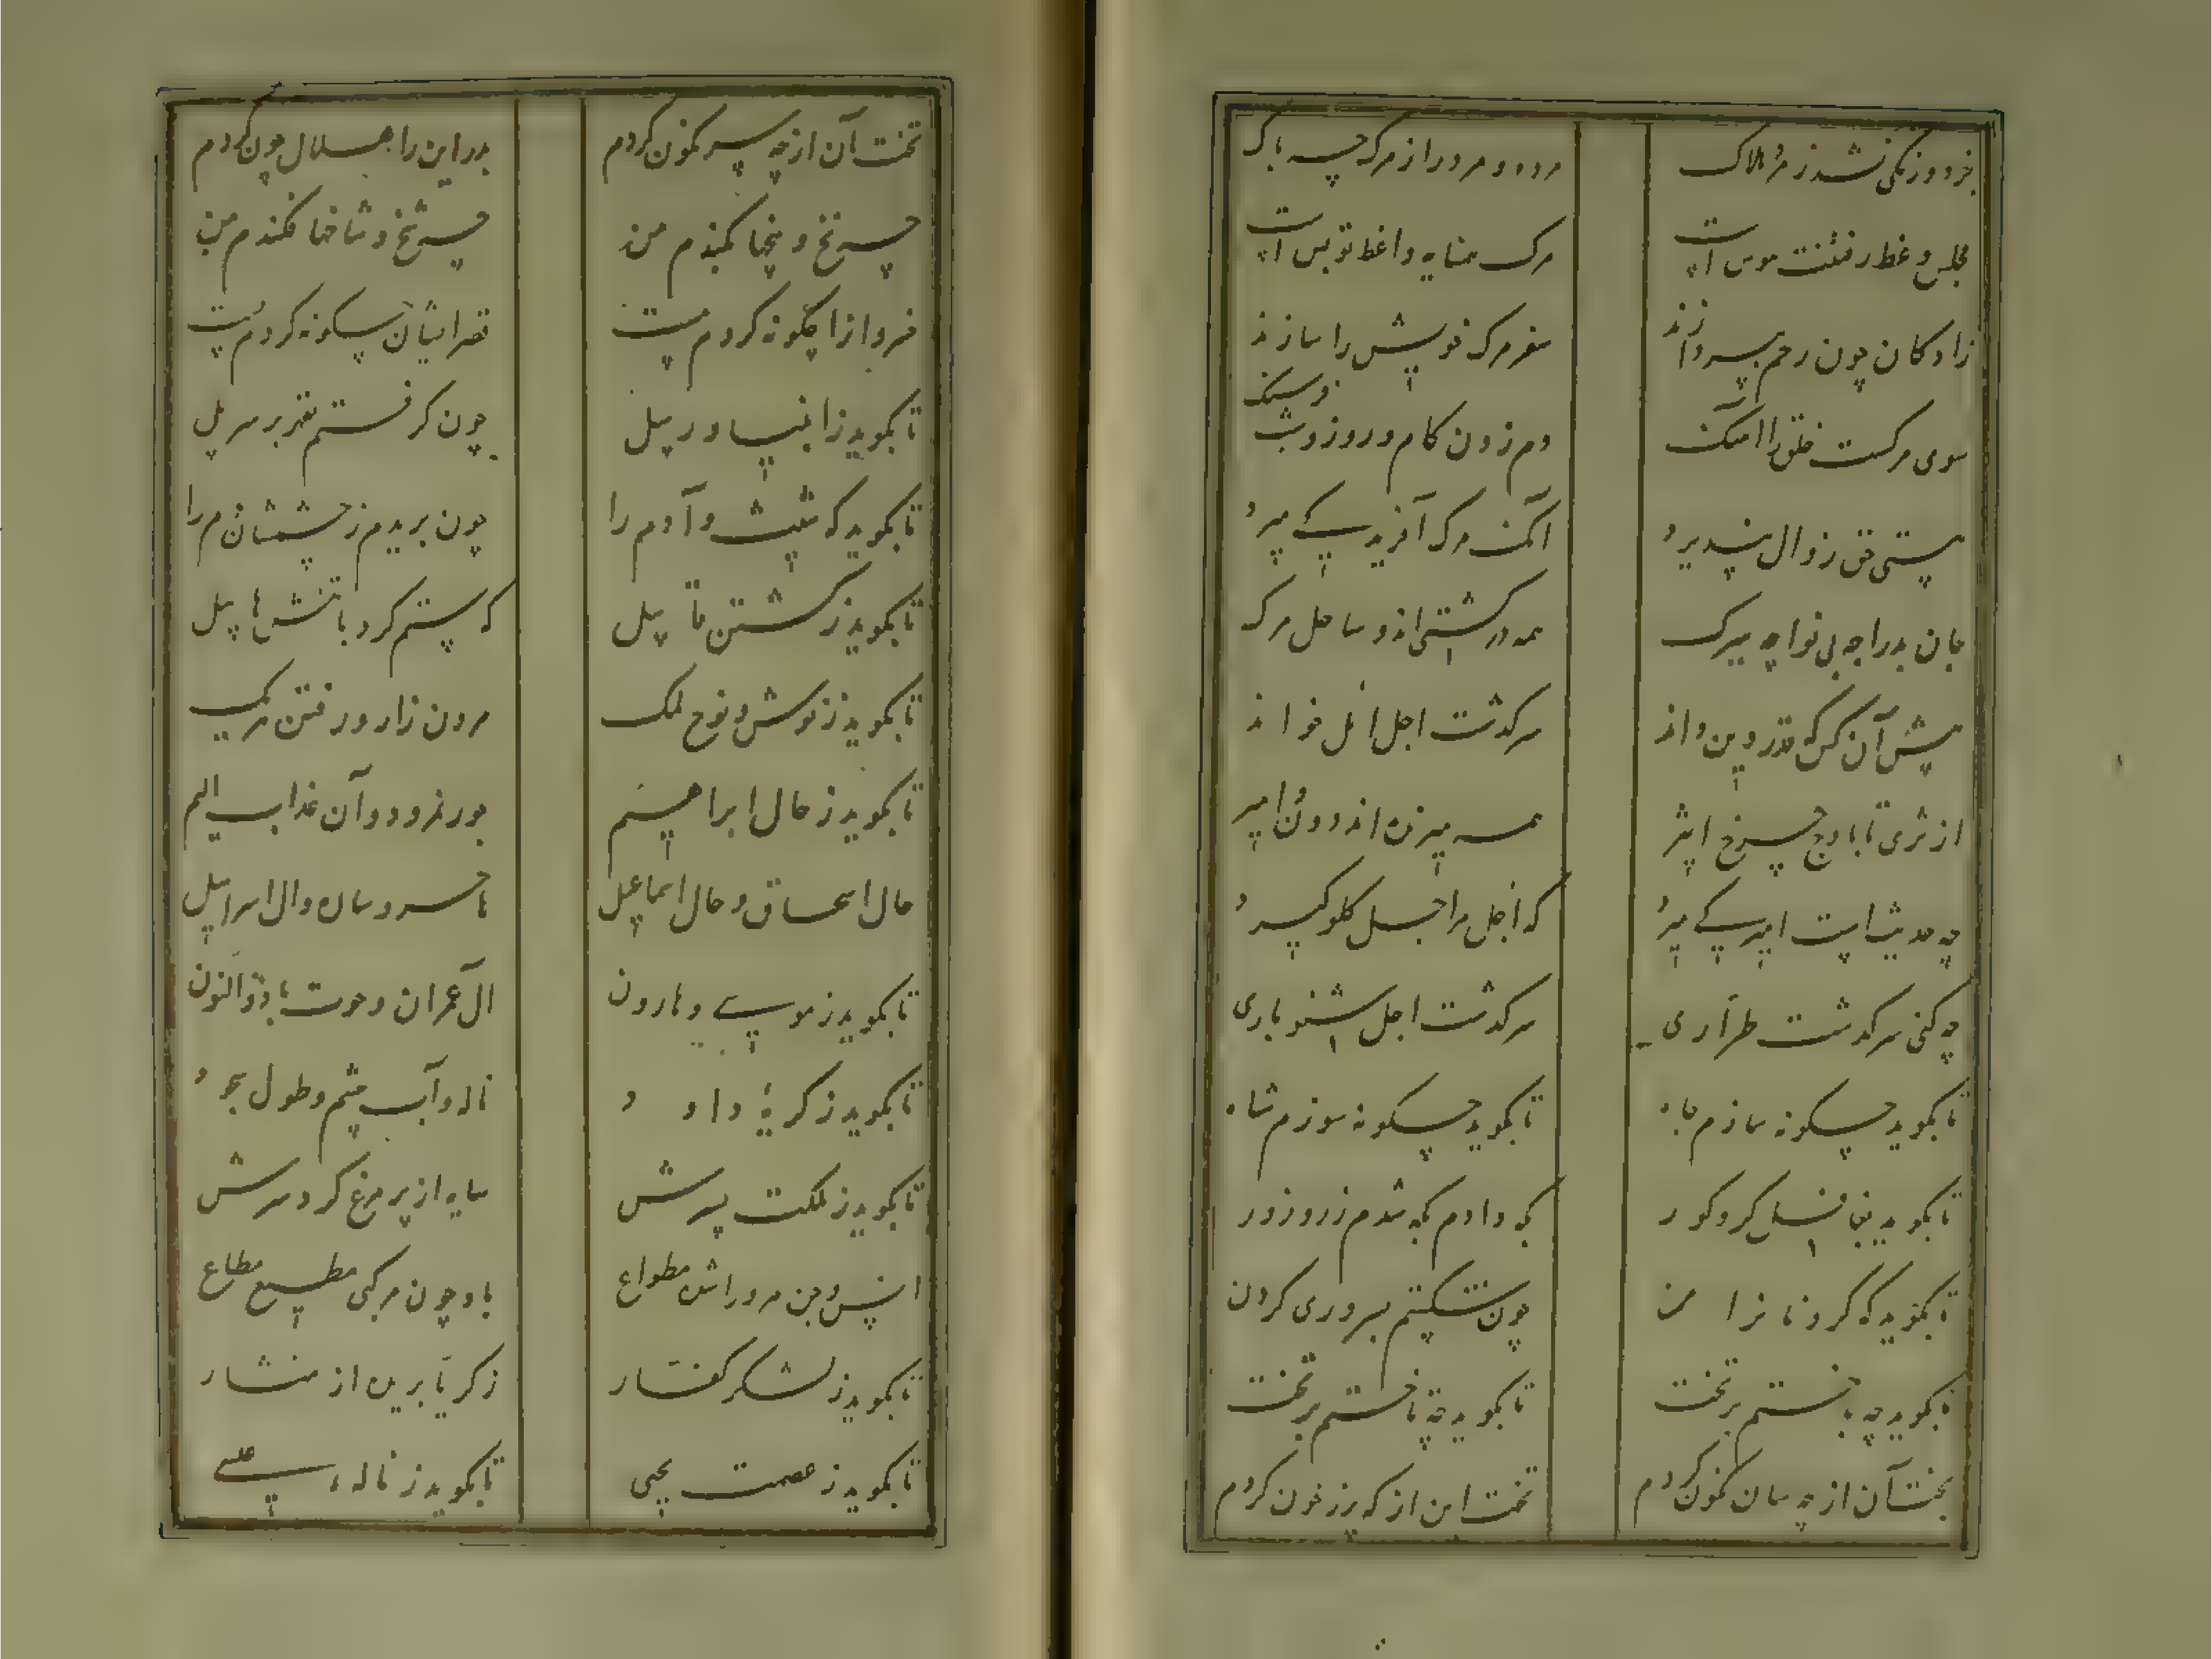 بخرد و زندگی نشد ز مرد هلاک
مرده و مرد را ز مرگ چه باک
مجلس وعظ رفتنت هوس است
مرگ همسایه واعظ تو بس است
زادگان چون رحم بپردازند
سفر مرگ خویش را سازند
سوی مرگست خلق را آهنگ
دم زدن گام و روز و شب فرسنگ
هستی حق زوال نپذیرد
آنکه مرگ آفرید کی میرد
جان پدرا چه بی نوا چه ببرگ
همه در کشتی‌اند و ساحل مرگ
پیش آن کس که قدر دین داند
سرگذشت اجل اجل خواند
از ثری تا باوج چرخ اثیر
همه میرنده‌اند دون و امیر
چه حدیث است امیر کی میرد
که اجل را اجل گلو گیرد
چه کنی سرگذشت طراری
سرگذشت اجل شنو باری
تا بگوید چگونه سازم جاه
تا بگوید چگونه سوزم شاه
تا بگوید بنا کسان کر و کور
که دادم که شدم زر و زور
تا بگوید که گردنانرا من
چون شکستم بسروری گردن
تا بگوید چه باختم بر تخت
تا بگوید چه تاختم بر تخت
تخت آن از چه سان نگون کردم
تخت این از که پر ز خون کردم
تخت آن از چه سر نگون کردم
بدر این را هلال چون کردم
چه نخ و بیخها بکندم من
چه شخ و شاخها فکندم من
سروانرا چگونه کردم مست
قصر ایشان چگونه کردم پست
تا بگوید ز انبیا و رسل
چون گرفتم بقهر بر سر پل
تا بگوید که شیث و آدم را
چون بریدم ز چشمشان نم را
تا بگوید ز کشتن قابیل
که ستم کرد با تنش هابیل
تا بگوید ز نوش و نوح ملک
مردن زار و رفتن مریک
تا بگوید ز حال ابراهیم
جور نمرود و آن عذاب الیم
حال اسحاق و حال اسماعیل
با خسر و ساره و آل اسرائیل
تا بگوید ز موسی و هارون
آل عمران و حوت با ذوالنون
تا بگوید ز گریهٔ داود
ناله و آب چشم و طول سجود
تا بگوید ز ملکت پسرش
سایه از پر مرغ کرد سرش
انس و جن مر ورا شده مطواع
باد چون مرکبی مطیع مطاع
تا بگوید ز لشکر کفار
زکریا بریده از منشار
تا بگوید ز عصمت یحیی
تا بگوید ز نالهٔ عیسی